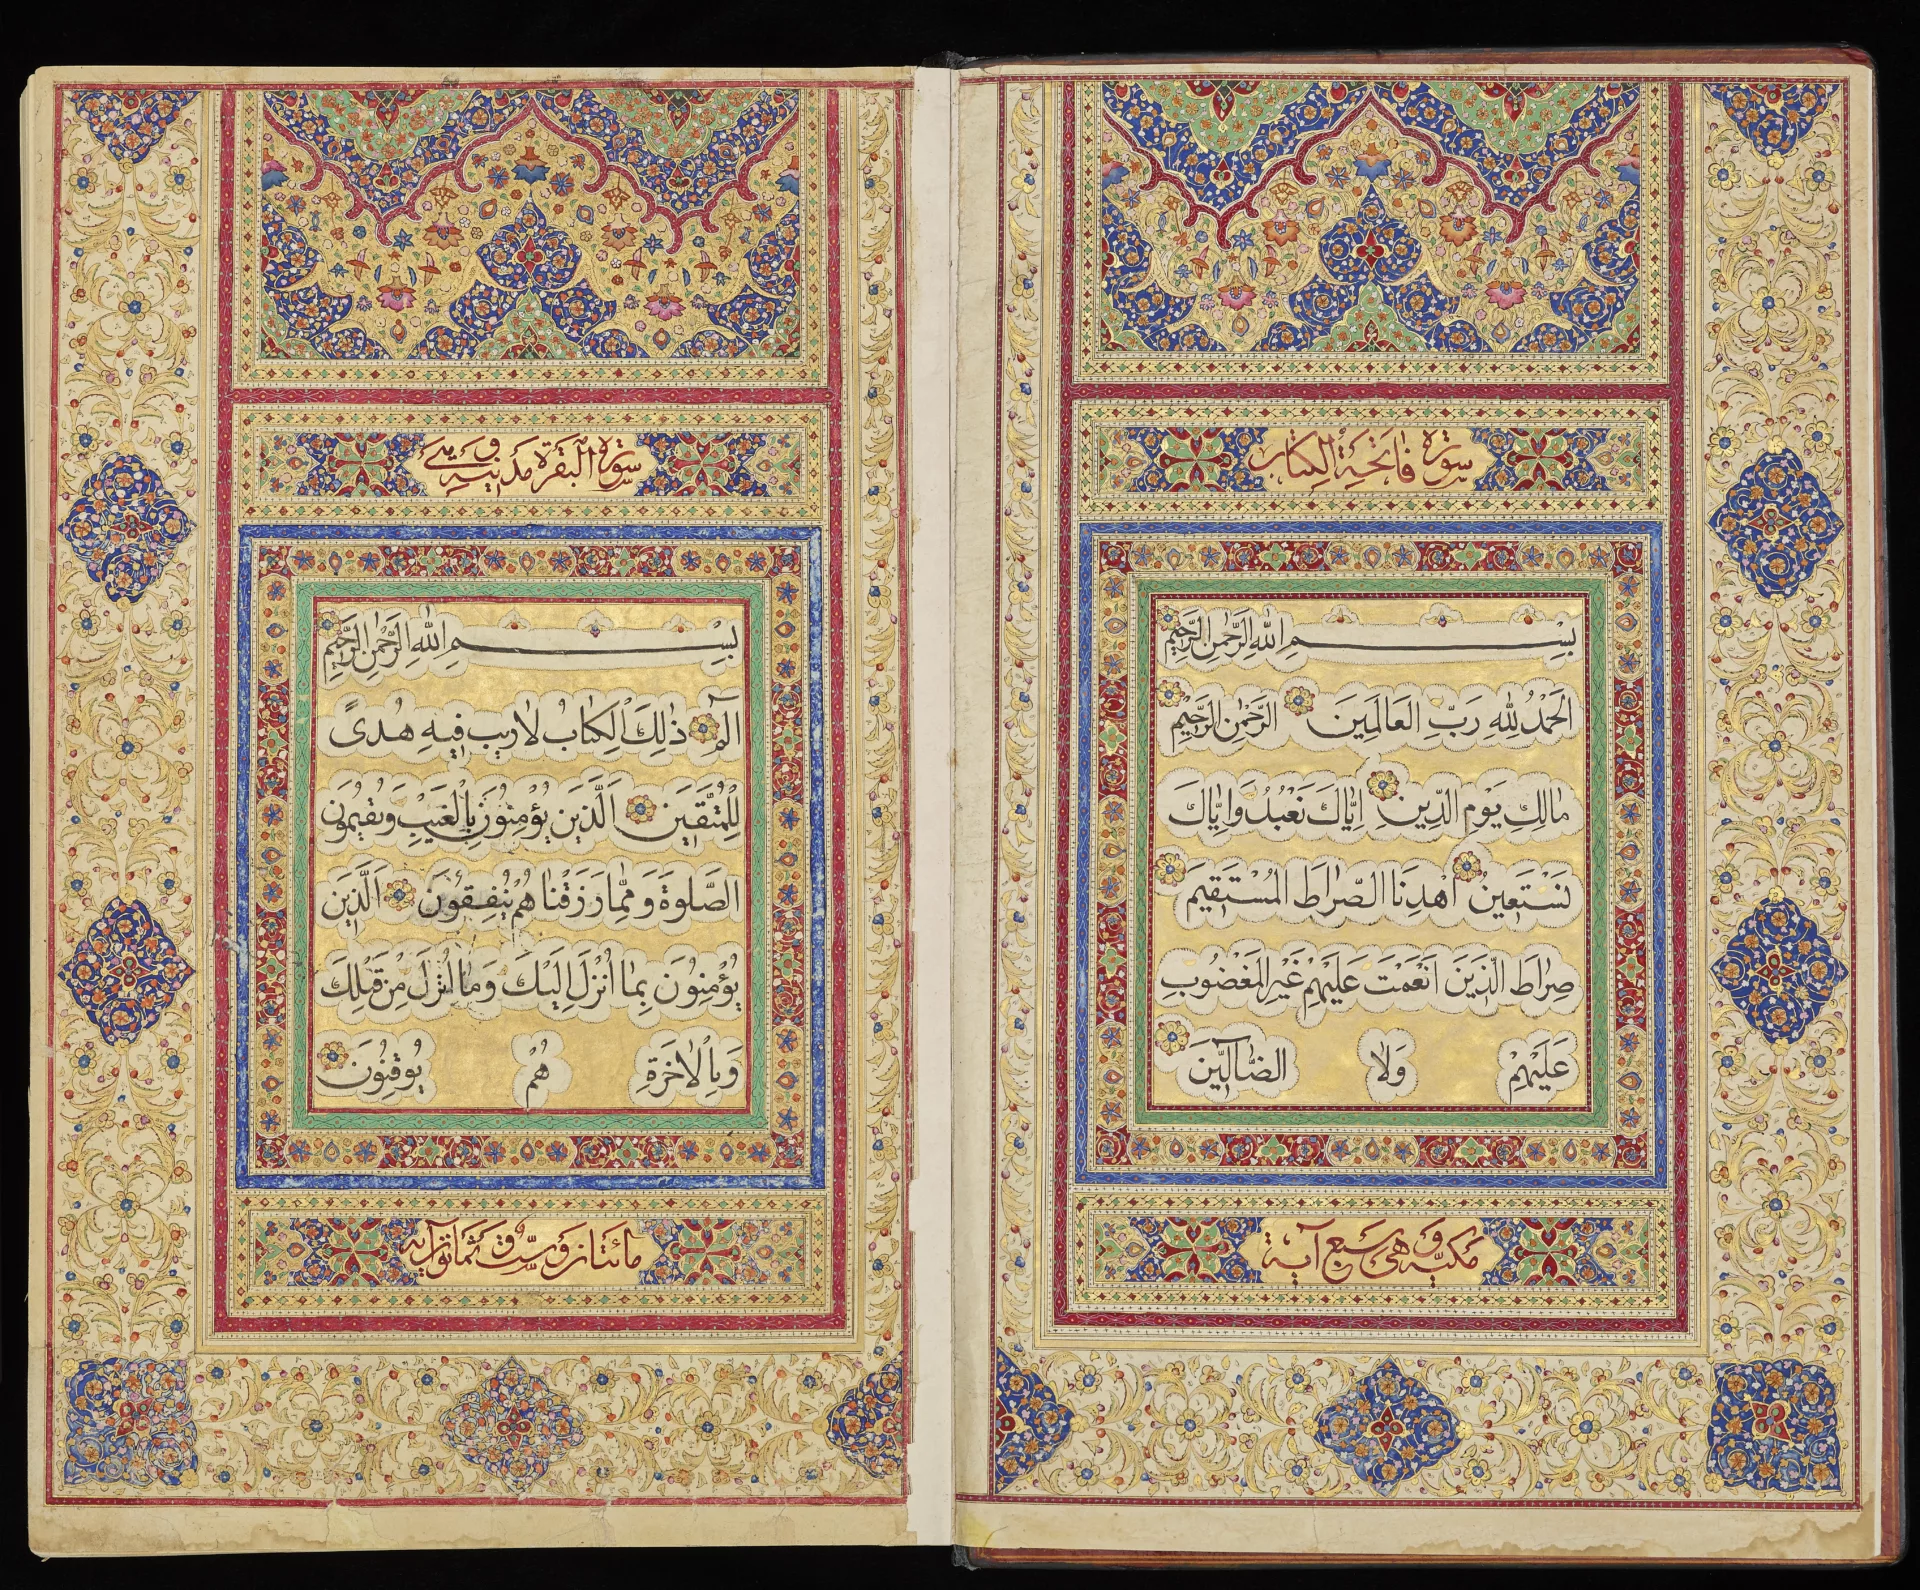 سورة فاتحة الكتاب
بِسْمِ اللهِ الرَّحْمٰنِ الرَّحِيمِ
الحَمْدُ لِلهِ رَبِّ العَالَمِينَ الرَّحْمٰنِ الرَّحِيمِ
مَالِكِ يَوْمِ الدِّينِ اِيَّاكَ نَعْبُدُ وَاِيَّاكَ
نَسْتَعِينُ اهْدِنَا الصِّرَاطَ المُسْتَقِيمَ
صِرَاطَ الَّذِينَ اَنْعَمْتَ عَلَيْهِمْ غَيْرِ المَغْضُوبِ
عَلَيْهِمْ وَلَا الضَّآلِّينَ
مكية وهي سبع آية
سورة البقرة مدنية وهي
بِسْمِ اللهِ الرَّحْمٰنِ الرَّحِيمِ
الٓمٓ ذٰلِكَ الْكِتَابُ لَا رَيْبَ فِيهِ هُدًى
لِلْمُتَّقِينَ اَلَّذِينَ يُؤْمِنُونَ بِالْغَيْبِ وَيُقِيمُونَ
الصَّلٰوةَ وَمِمَّا رَزَقْنَا هُمْ يُنْفِقُونَ اَلَّذِينَ
يُؤْمِنُونَ بِمَا اُنْزِلَ اِلَيْكَ وَمَا اُنْزِلَ مِنْ قَبْلِكَ
وَبِالْاٰخِرَةِ هُمْ يُوقِنُونَ
مائتان وست وثمانون آية